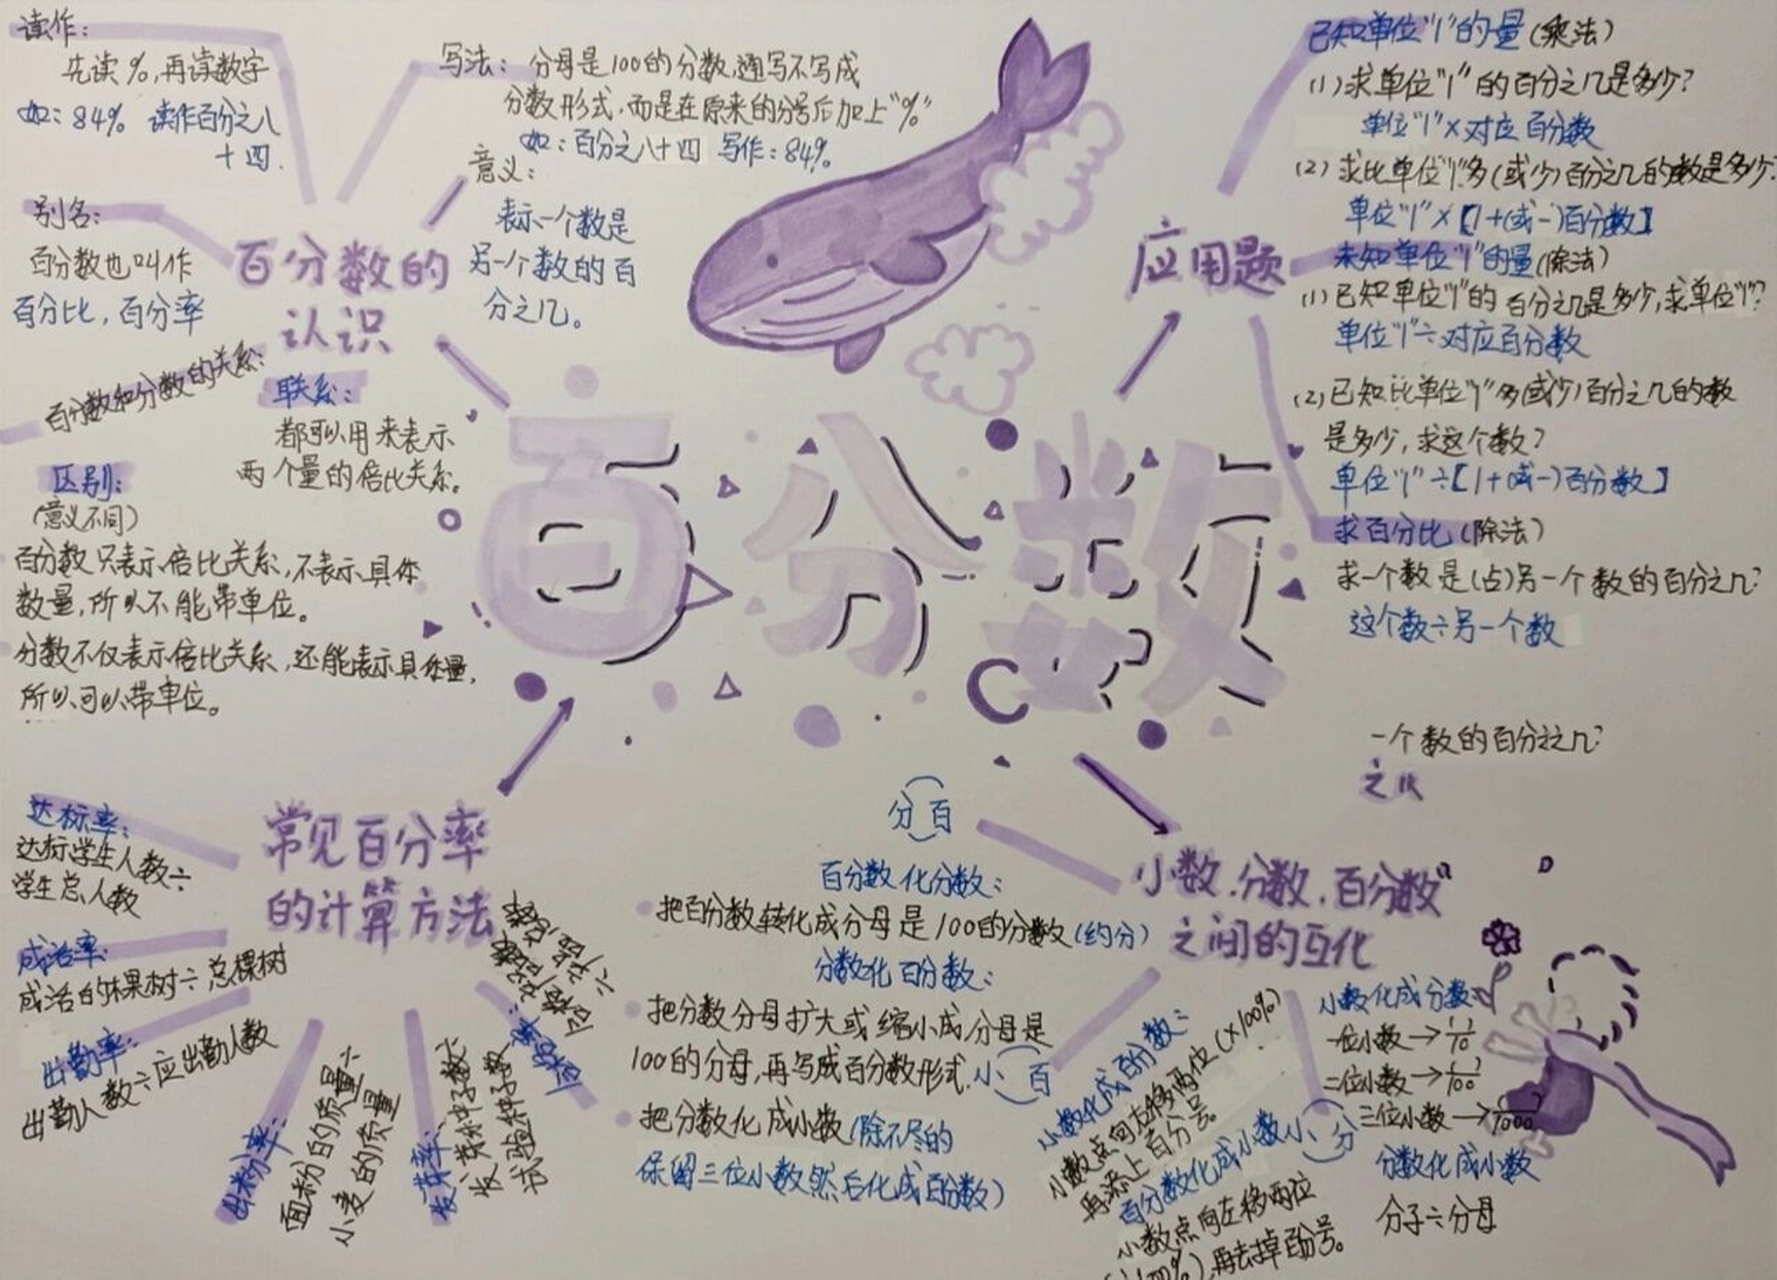 读作：
先读％，再读数字
如：84％ 读作百分之八
十四.
写法：分母是100的分数，通写不写成
分数形式，而是在原来的分号后加上"％"
如：百分之八十四 写作：84％
意义：
表示一个数是
另一个数的百
分之几。
别名：
百分数也叫作
百分比，百分率
百分数的
认识
百分数和分数的关系：
联系：
都可以用来表示
两个量的倍比关系。
区别：
(意义不同)
百分数只表示倍比关系，不表示具体
数量，所以不能带单位。
分数不仅表示倍比关系，还能表示具体量，
所以可以带单位。
百分数
应用题
已知单位"1"的量(乘法)
(1)求单位"1"的百分之几是多少？
单位"1"×对应百分数
(2)求比单位"1"多(或少)百分之几的数是多少？
单位"1"×【1+(或-)百分数】
未知单位"1"的量(除法)
(1)已知单位"1"的百分之几是多少，求单位"1"？
单位"1"÷对应百分数
(2)已知比单位"1"多(或少)百分之几的数
是多少，求这个数？
单位"1"÷【1+(或-)百分数】
求百分比(除法)
求一个数是(占)另一个数的百分之几？
这个数÷另一个数
一个数的百分之几？
常见百分率
的计算方法
达标率：
达标学生人数÷
学生总人数
成活率：
成活的棵树÷总棵树
出勤率：
出勤人数÷应出勤人数
出粉率：
面粉的质量÷
小麦的质量
发芽率：
发芽种子数÷
试验种子数
小数.分数.百分数
之间的互化
分 百
百分数化分数：
把百分数转化成分母是100的分数(约分)
分数化百分数：
把分数分母扩大或缩小成分母是
100的分母，再写成百分数形式.
把分数化成小数(除不尽的
保留三位小数然后化成百分数)
小 百
小数化成百分数：
小数点向右移两位(×100％)
再添上百分号
百分数化成小数
小数点向左移两位
(÷100％)，再去掉百分号。
小 分
小数化成分数
一位小数→1/10
二位小数→1/100
三位小数→1/1000
分数化成小数
分子÷分母